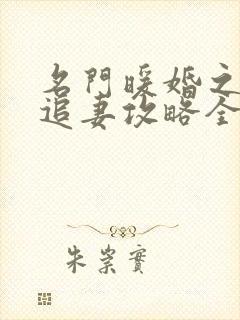 名門暖婚之
追妻攻略全
朱崇實